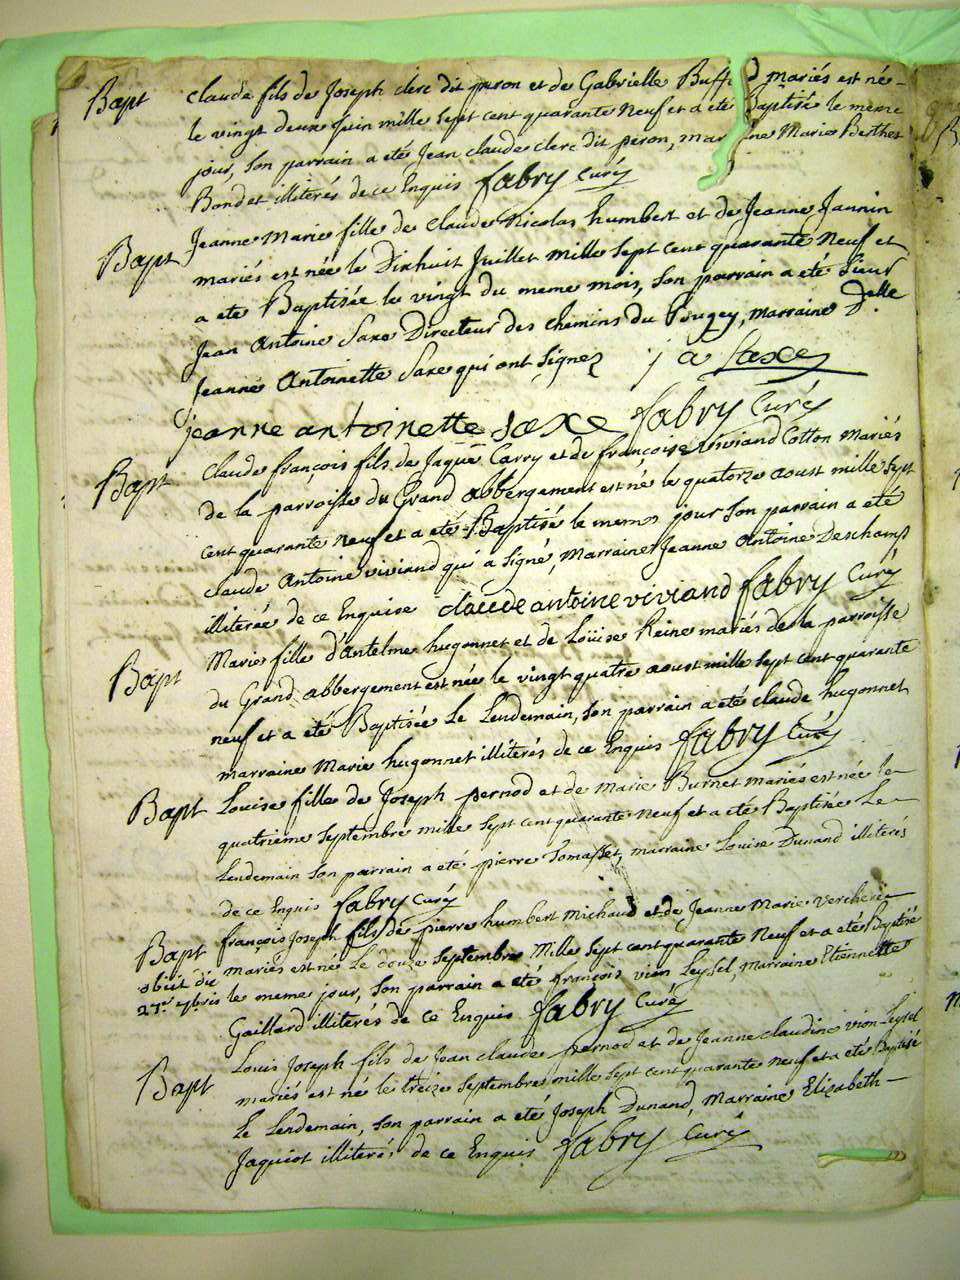 Bapt claude fils de Joseph clerc dit peron et de Gabrielle Buff d mariés est né
le vingt deux juin mille sept cent quarante Neuf et a eté Baptisé le meme
jour, son parrain a eté Jean claude clerc dit peron, mar ne Marie Berthet
Bondet illiterés de ce Enquis fabry Curé
Bapt Jeanne Marie fille de claude Nicolas humbert et de Jeanne Jannin
mariés est née le Dixhuit Juillet mille sept cent quarante Neuf et
a eté Baptisée le vingt du meme mois, son parrain a eté Sieur
Jean Antoine Saxe Directeur des chemins du Bugey, marraine Delle
Jeanne Antoinette Saxe qui ont signez j a saxe
jeanne antoinette saxe fabry Curé
Bapt Claude françois fils de Jaque Carry et de françoise viviand Cotton Mariés
de la parroisse du Grand abbergement est né le quatorze aoust mille sept
cent quarante Neuf et a eté Baptisé le meme jour son parrain a eté
claude Antoine viviand qui a signé, Marraine Jeanne Antoine Deschamps
illiterée de ce Enquise claude antoine viviand fabry Curé
Bapt Marie fille d'antelme hugonnet et de Louise Reine mariés de la parroisse
du Grand abbergement est née le vingt quatre aoust mille sept cent quarante
neuf et a eté Baptisée Le Lendemain, son parrain a eté claude hugonnet
marraine Marie hugonnet illiterés de ce Enquis fabry Curé
Bapt Louise fille de Joseph pernod et de Marie Burnet mariés est née le
quatrieme septembre mille sept cent quarante Neuf et a eté Baptisée Le
Lendemain son parrain a eté pierre Tomasset, marraine Louise Dunand illiterés
de ce Enquis fabry Curé
Bapt françois Joseph fils de pierre humbert Michaud et de Jeanne Marie vercherie
obiit die mariés est né Le douze septembre Mille sept cent quarante Neuf et a eté Baptisé
27e 7bris le meme jour, son parrain a eté françois vion Leysel, Marraine Etiennette
Gaillard illiterés de ce Enquis fabry Curé
Bapt Louis Joseph fils de Jean claude pernod et de Jeanne claudine vion Leysel
mariés est né le treize septembre mille sept cent quarante neuf et a eté Baptisé
Le Lendemain, son parrain a eté Joseph Dunand, Marraine Elizabeth
Jaquiot illiterés de ce Enquis fabry Curé